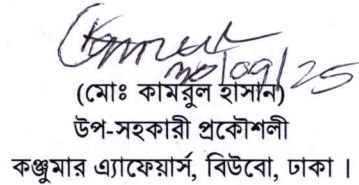 30/09/25
(মোঃ কামরুল হাসান)
উপ-সহকারী প্রকৌশলী
কঞ্জুমার এ্যাফেয়ার্স, বিউবো, ঢাকা ।